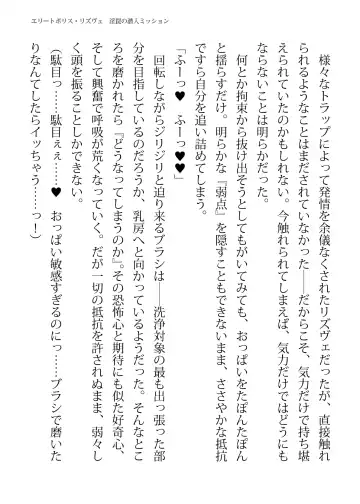 エリートポリス・リズヴェ　淫罠の潜入ミッション
様々なトラップによって発情を余儀なくされたリズヴェだったが、直接触れ
られるようなことはまだされていなかった――だからこそ、気力だけで持ち堪
えられていたのかもしれない。今触れられてしまえば、気力だけではどうにも
ならないことは明らかだった。
何とか拘束から抜け出そうとしてもがいてみても、おっぱいをたぽんたぽん
と揺らすだけ。明らかな『弱点』を隠すこともできないまま、ささやかな抵抗
ですら自分を追い詰めてしまう。
「ふーっ♥　ふーっ♥♥」
回転しながらジリジリと迫り来るブラシは　　洗浄対象の最も出っ張った部
分を目指しているのだろうか、乳房へと向かっているようだった。そんなとこ
ろを磨かれたら『どうなってしまうのか』。その恐怖心と期待にも似た好奇心、
そして興奮で呼吸が荒くなっていく。だが一切の抵抗を許されぬまま、弱々し
く頭を振ることしかできない。
（駄目っ……駄目ぇぇ……♥　おっぱい敏感すぎるのにっ……ブラシで磨いた
りなんてしたらイッちゃう……っ！）